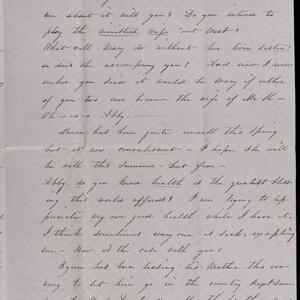 me about it will you? Do you intend to
play the ministers wife "out West"?
What will Mary do without her twin sister?
or does she accompany you? And now I rem-
ember you said it would be Mary if either
of you two ever became the wife of Mr H-
Oh-o-o-o Abby.
Laura has been quite unwell this Spring
but is now convalescent - I hope she will
be well this summer - But from -
Abby, do you know health is the greatest bless
ing this world affords? I am trying to ap-
preciate my own good health, while I have it.
I think sometimes every one is sick, excepting
me - How is the case with you?
Byron has been teasing his Mother this eve
ning to let him go in the country